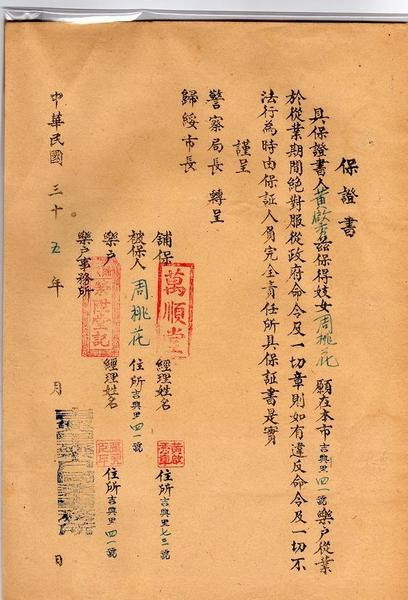 保證書
具保證書人黃啟秀茲保得妓女周桃花 願在本市吉興里四一號樂戶從業
於從業期間絕對服從政府命令及一切章則如有違反命令及一切不
法行為時由保証人負完全責任所具保証書是實
謹呈
警察局長 轉呈
歸綏市長
舖保 萬順堂 經理姓名 黃啟秀章 住所吉興里七三號
被保人 周桃花 住所吉興里四一號
樂戶 經理姓名 住所吉興里四一號
樂戶事務所
中華民國 三十五年 月 日